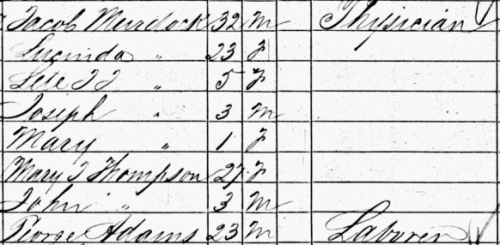 Jacob Murdock 32 M Physician
Lucinda " 23 F
" 5 F
Joseph " 3 M
Mary " 1 F
Mary T Thompson 27 F
John " 3 M
George Adams 23 M Laborer